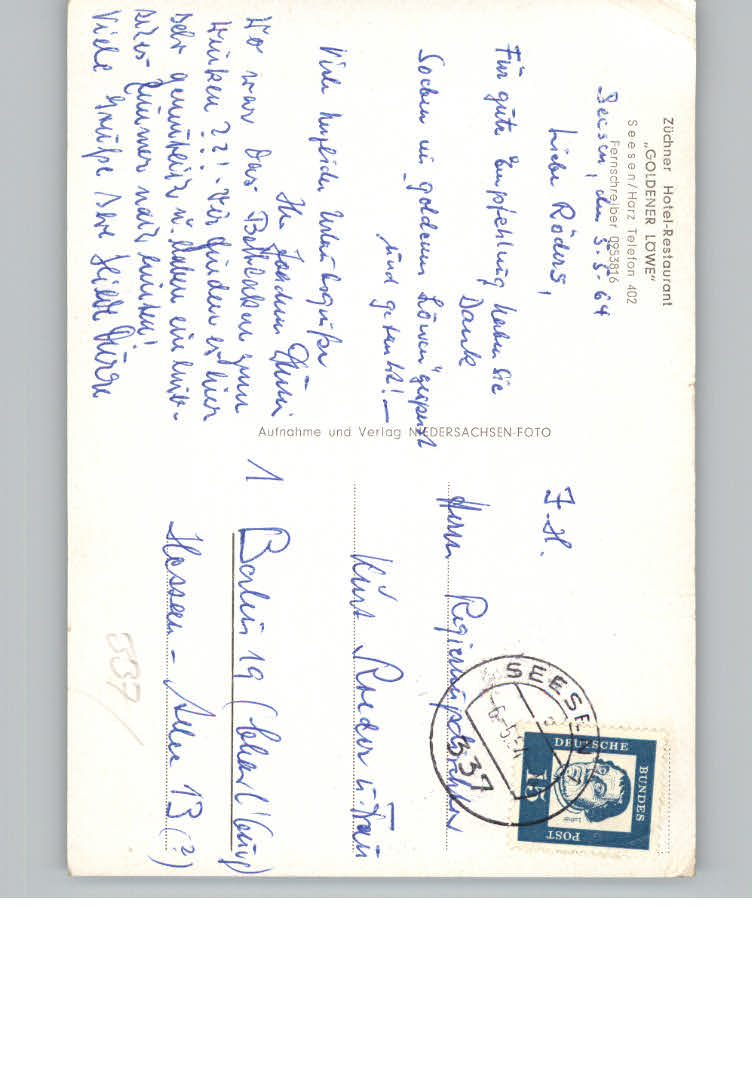 Züchner Hotel-Restaurant
„GOLDENER LÖWE“
Seesen/Harz Telefon 402
Fernschreiber 0953816
Seesen, den 5.5.64
Liebe Röders,
Für gute Empfehlung haben Sie
Dank
Soeben im „goldenen Löwen“ gespeist
und getankt! —
Viele herzliche Urlaubsgrüße
Ihr Joachim
Wo war das Bettlaken zum
Winken??! - Wir finden es hier
sehr gemütlich u. haben ein
Zimmer nach hinten!
Viele Grüße Ihre
Aufnahme und Verlag NIEDERSACHSEN-FOTO
Z. H.
Herrn Regierungsdirektor
Kurt Roeder u. Frau
1 Berlin 19 (Charl'burg)
Hessen-Allee 13 (?)
SEESEN
337
6.5.64
DEUTSCHE
BUNDES
POST
15
Luther
337